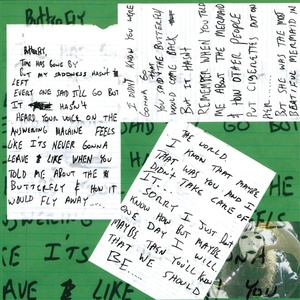 BUTTERFLY
TIME HAS GONE BY
BUT MY SADDNESS HASN'T
LEFT
EVERY ONE SAID T'LL GO BUT
IT HASN'T
HEARD YOUR VOICE ON THE
ANSWERING MACHINE FEELS
LIKE IT'S NEVER GONNA
LEAVE & LIKE WHEN YOU
TOLD ME ABOUT THE
BUTTERFLY & HOW IT
WOULD FLY AWAY....
I DIDN'T KNOW YOU WERE
GONNA
YOU SAID THE BUTTERFLY
WOULD COME BACK
BUT IT HASN'T
REMEMBER WHEN YOU TOLD
ME ABOUT THE MERMAID
& HOW OTHER PEOPLE
PUT CIGARETTES OUT ON
HER...
BUT SHE WAS THE MOST
BEAUTIFUL MERMAID IN
THE WORLD.
I KNOW THAT MAYBE
THAT WAS YOU AND I
DIDN'T TAKE CARE OF
IT...
SORRY I JUST DIDN'T
KNOW HOW BUT MAYBE
ONE DAY I WILL
MAYBE THEN YOU'LL KNOW
THAT WE SHOULD
BE....
LEFT
GO BUT
ON THE
FEELS
ANSWERING
LIKE IT'S
GONNA
LEAVE & LIKE
YOU